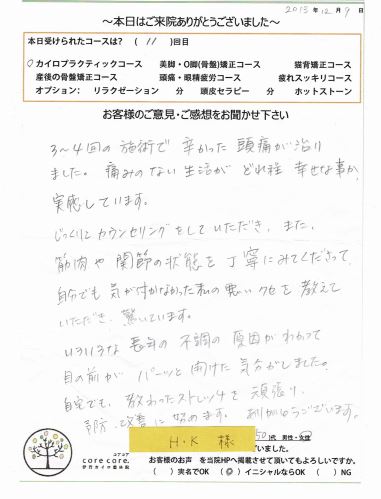 2013年12月9日
～本日はご来院ありがとうございました～
本日受けられたコースは？ （ 11 ）回目
○カイロプラクティックコース 美脚・O脚(骨盤)矯正コース 猫背矯正コース
産後の骨盤矯正コース 頭痛・眼精疲労コース 疲れスッキリコース
オプション： リラクゼーション 分 頭皮セラピー 分 ホットストーン
お客様のご意見・ご感想をお聞かせ下さい
3～4回の施術で 辛かった 頭痛が治り
ました。痛みのない生活が どれ程 幸せな事か
実感しています。
じっくりとカウンセリングをしていただき、また、
筋肉や関節の状態を丁寧にみてくださって、
自分でも気が付かなかった私の悪いクセを教えて
いただき、驚いています。
いろいろな長年の不調の原因がわかって
目の前が パーッと開けた気分がしました。
自宅でも、教わったストレッチを頑張り、
予防・改善に努めます。ありがとうございます。
H.K 様
50)代 男性・女性
いました。
お客様のお声 を当院HPへ掲載させて頂いてもよろしいですか。
（ ）実名でOK （○）イニシャルならOK （ ）NG
コアコア
core core.
伊丹カイロ整体院